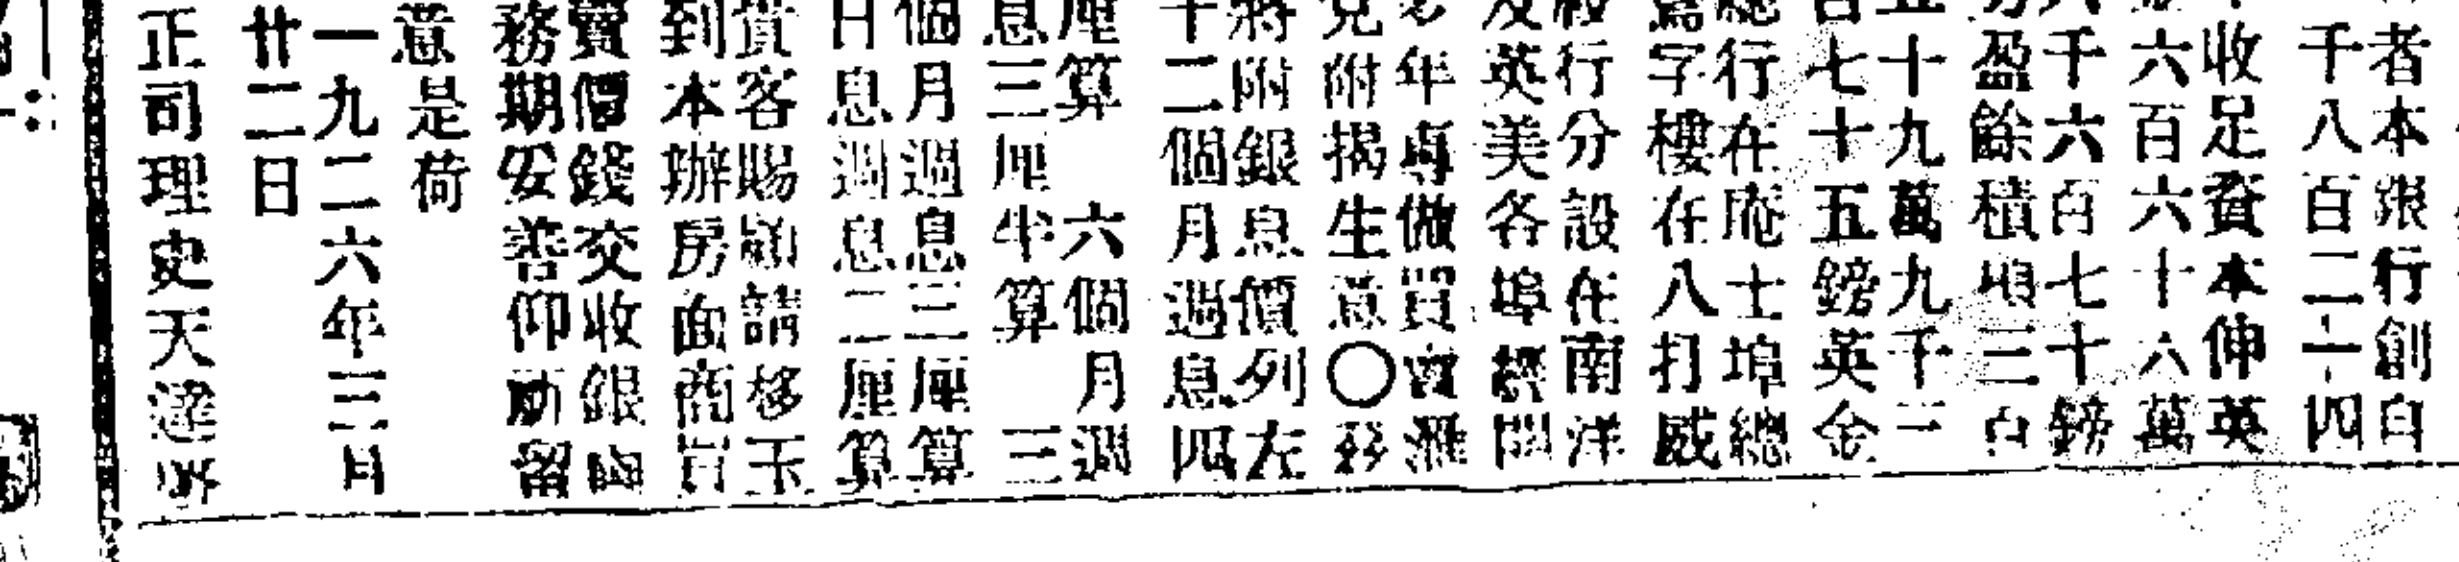 者本銀行創自
千八百二十四
收足資本伸英
六百六十六萬
六千六百七十鎊
盈餘積項三百
五十九萬九千三
百七十五鎊英金
總行在庵士埠總
寫字樓在八打威
行分設在南洋
及英美各埠經
年專做買賣滙
兌附揭生意〇
將附銀息價列左
十二個月週息四
厘算 六個月週
息三厘半算 三
個月週息三厘算
日息週息二厘算
貴客賜顧請移玉
到本辦房面商
賣價錢交收銀
務期妥善仰留
意是荷
一九二六年三月
廿二日
正司理史天達